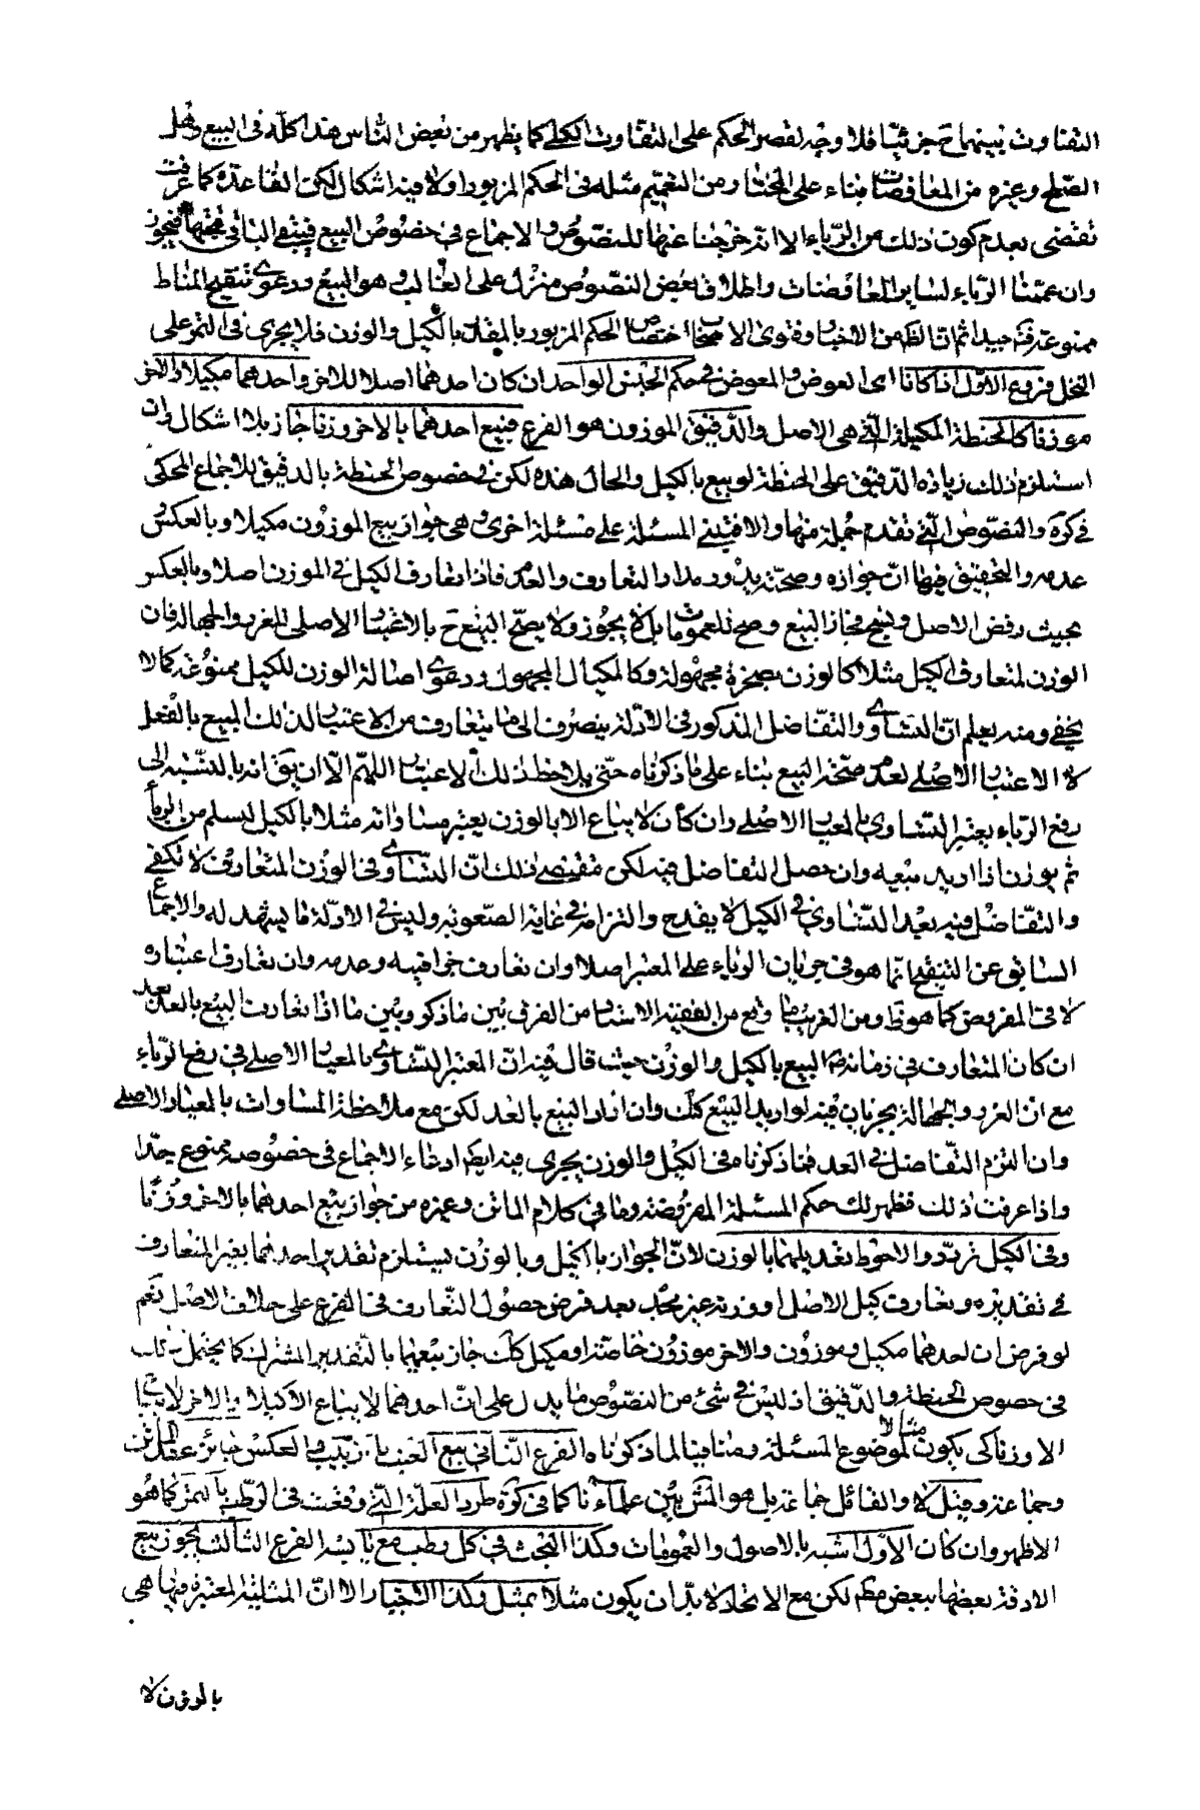 التفاوت بينهما ح جزئيّا فلا وجه لقصر الحكم على التفاوت الكلى كما يظهر من بعض الناس هذا كلّه فى البيع وهل
الصّلح وغيره من المعاوضات بناء على المختار من التعميم مثله فى الحكم المزبور اولا فيه اشكال لكن القاعدة كما عرفت
تقتضى بعدم كون ذلك من الرّباء الا انه خرجنا عنها للنصّوص والاجماع فى خصوص البيع فيبقى الباقى تحتها فيجوز
وان عمّمنا الرّباء لساير المعاوضات واطلاق بعض النصّوص منزّل على الغالب وهو البيع ودعوى تنقيح المناط
ممنوعة فته جيدا ثم ان الظ من الاخبار وفتوى الاصحاب اختصاص الحكم المزبور بالمقدّر بالكيل والوزن فلا يجرى فى التمر على
النخل فروع الاوّل اذا كانا اى العوض والمعوض فى حكم الجنس الواحد ان كان احدهما اصلا للاخر واحدهما مكيلا والاخر
موزونا كالحنطة المكيلة التّى هى الاصل والدّقيق الموزون هو الفرع فبيع احدهما بالاخر وزنا جاز بلا اشكال وان
استلزم ذلك زيادة الدّقيق على الحنطة لو بيع بالكيل والحال هذه لكن فى خصوص الحنطة بالدقيق للاجماع المحكى
فى كرة والنصّوص التّى تقدم جملة منها والا فتبنى المسئلة على مسئلة اخرى وهى جواز بيع الموزون مكيلا وبالعكس
عدمه والتحقيق فيها انّ جوازه وصحّته يدور مدار التعارف والعدم فاذا تعارف الكيل فى الموزن اصلا وبالعكس
بحيث رفض الاصل ونسخ فجاز البيع وصح للعمومات بل لا يجوز ولا يصحّ البيع ح بالاعتبار الاصلى للغرر والجهالة فان
الوزن لمتعارف الكيل مثلا كالوزن بصخرة مجهولة وكالمكيال المجهول ودعوى اصالة الوزن للكيل ممنوعة كما لا
يخفى ومنه يعلم انّ التساوى والتفّاضل المذكور فى الادّلة ينصرف الى ما يتعارف من الاعتبار لذلك المبيع بالفعل
لا الاعتبار الاصلى لعدم صحّة البيع بناء على ما ذكرناه حتّى يلاحظ ذلك الاعتبار اللهمّ الّا ان يق انه بالنسّبة الى
رفع الرّباء يعتبر التساوى بالمعيار الاصلى وان كان لا يباع الا بالوزن يعتبر مساواته مثلا بالكيل ليسلم من الرباء
ثم يوزن اذا اريد بيعه وان حصل التفاضل فيه لكن مقتضى ذلك انّ التسّاوى فى الوزن المتعارف لا تكفى
والتفّاضل فيه بعد التسّاوى فى الكيل لا يقدح والتزامه فى غاية الصّعوبة وليس فى الادّلة ما يشهد له والاجماع
السابق عن التنقيح انّما هو فى جريان الرّباء على المعتبر اصلا وان تعارف خرافيه وعدمه وان تعارف اعتباره
لا فى المفروض كما هو ظ ومن الغريب ما وقع من الفقيه الاستاد من الفرق بين ما ذكر وبين ما اذا تعارف البيع بالعدّ بعد
ان كان المتعارف فى زمانه ص البيع بالكيل والوزن حيث قال فيه انّ المعتبر التسّاوى بالمعيار الاصلى فى رفع الرّباء
مع انّ الغرر والجهالة يجريان فيه لو اريد البيع كك وان اراد البيع بالعد لكن مع ملاحظة المساوات بالمعيار الاصلى
وان التزم التفّاضل فى العد فما ذكرناه فى الكيل والوزن يجرى فيه ايضا وادعاء الاجماع فى خصوصه ممنوع جدّا
واذا عرفت ذلك فظهر لك حكم المسئلة المفروضة وما فى كلام الماتن وغيره من جواز بيع احدهما بالاخر وزنا
وفى الكيل تردّد والاحوط تعديلهما بالوزن لانّ الجواز بالكيل وبالوزن يستلزم تقدير احدهما بغير المتعارف
فى تقديره وتعارف كيل الاصل او وزنه غير مجّد بعد فرض حصول التّعارف فى الفرع على خلاف الاصل نعم
لو فرض ان احدهما مكيل وموزون والاخر موزون خاصّة او مكيل كك جاز بيعهما بالتّقدير المشترك كما يحتمل ذلك
فى خصوص الحنطة والدّقيق اذ ليس فى شئ من النصّوص ما يدل على انّ احدهما لا يباع الا كيلا والاخر لا يباع
الا وزنا كى يكون مثالا لموضوع المسئلة ومنافيا لما ذكرناه الفرع الثّانى بيع العنب بالزبيب والعكس جائز عند الماتن
وجماعة وقيل لا والقائل جماعة بل هو المش بين علمآءنا كما فى كرة طردا لعلّة التّى وقعت فى الرّطب بالتمر كما هو
الاظهر وان كان الاوّل اشبه بالاصول والعمومات وكذا البحث فى كل رطب مع يابسه الفرع الثّالث يجوز بيع
الادقة بعضها ببعض مط لكن مع الاتحاد لا بدّ ان يكون مثلا بمثل وكذا الاخباز الا انّ المثلية المعتبرة فيها هى
بالوزن لا